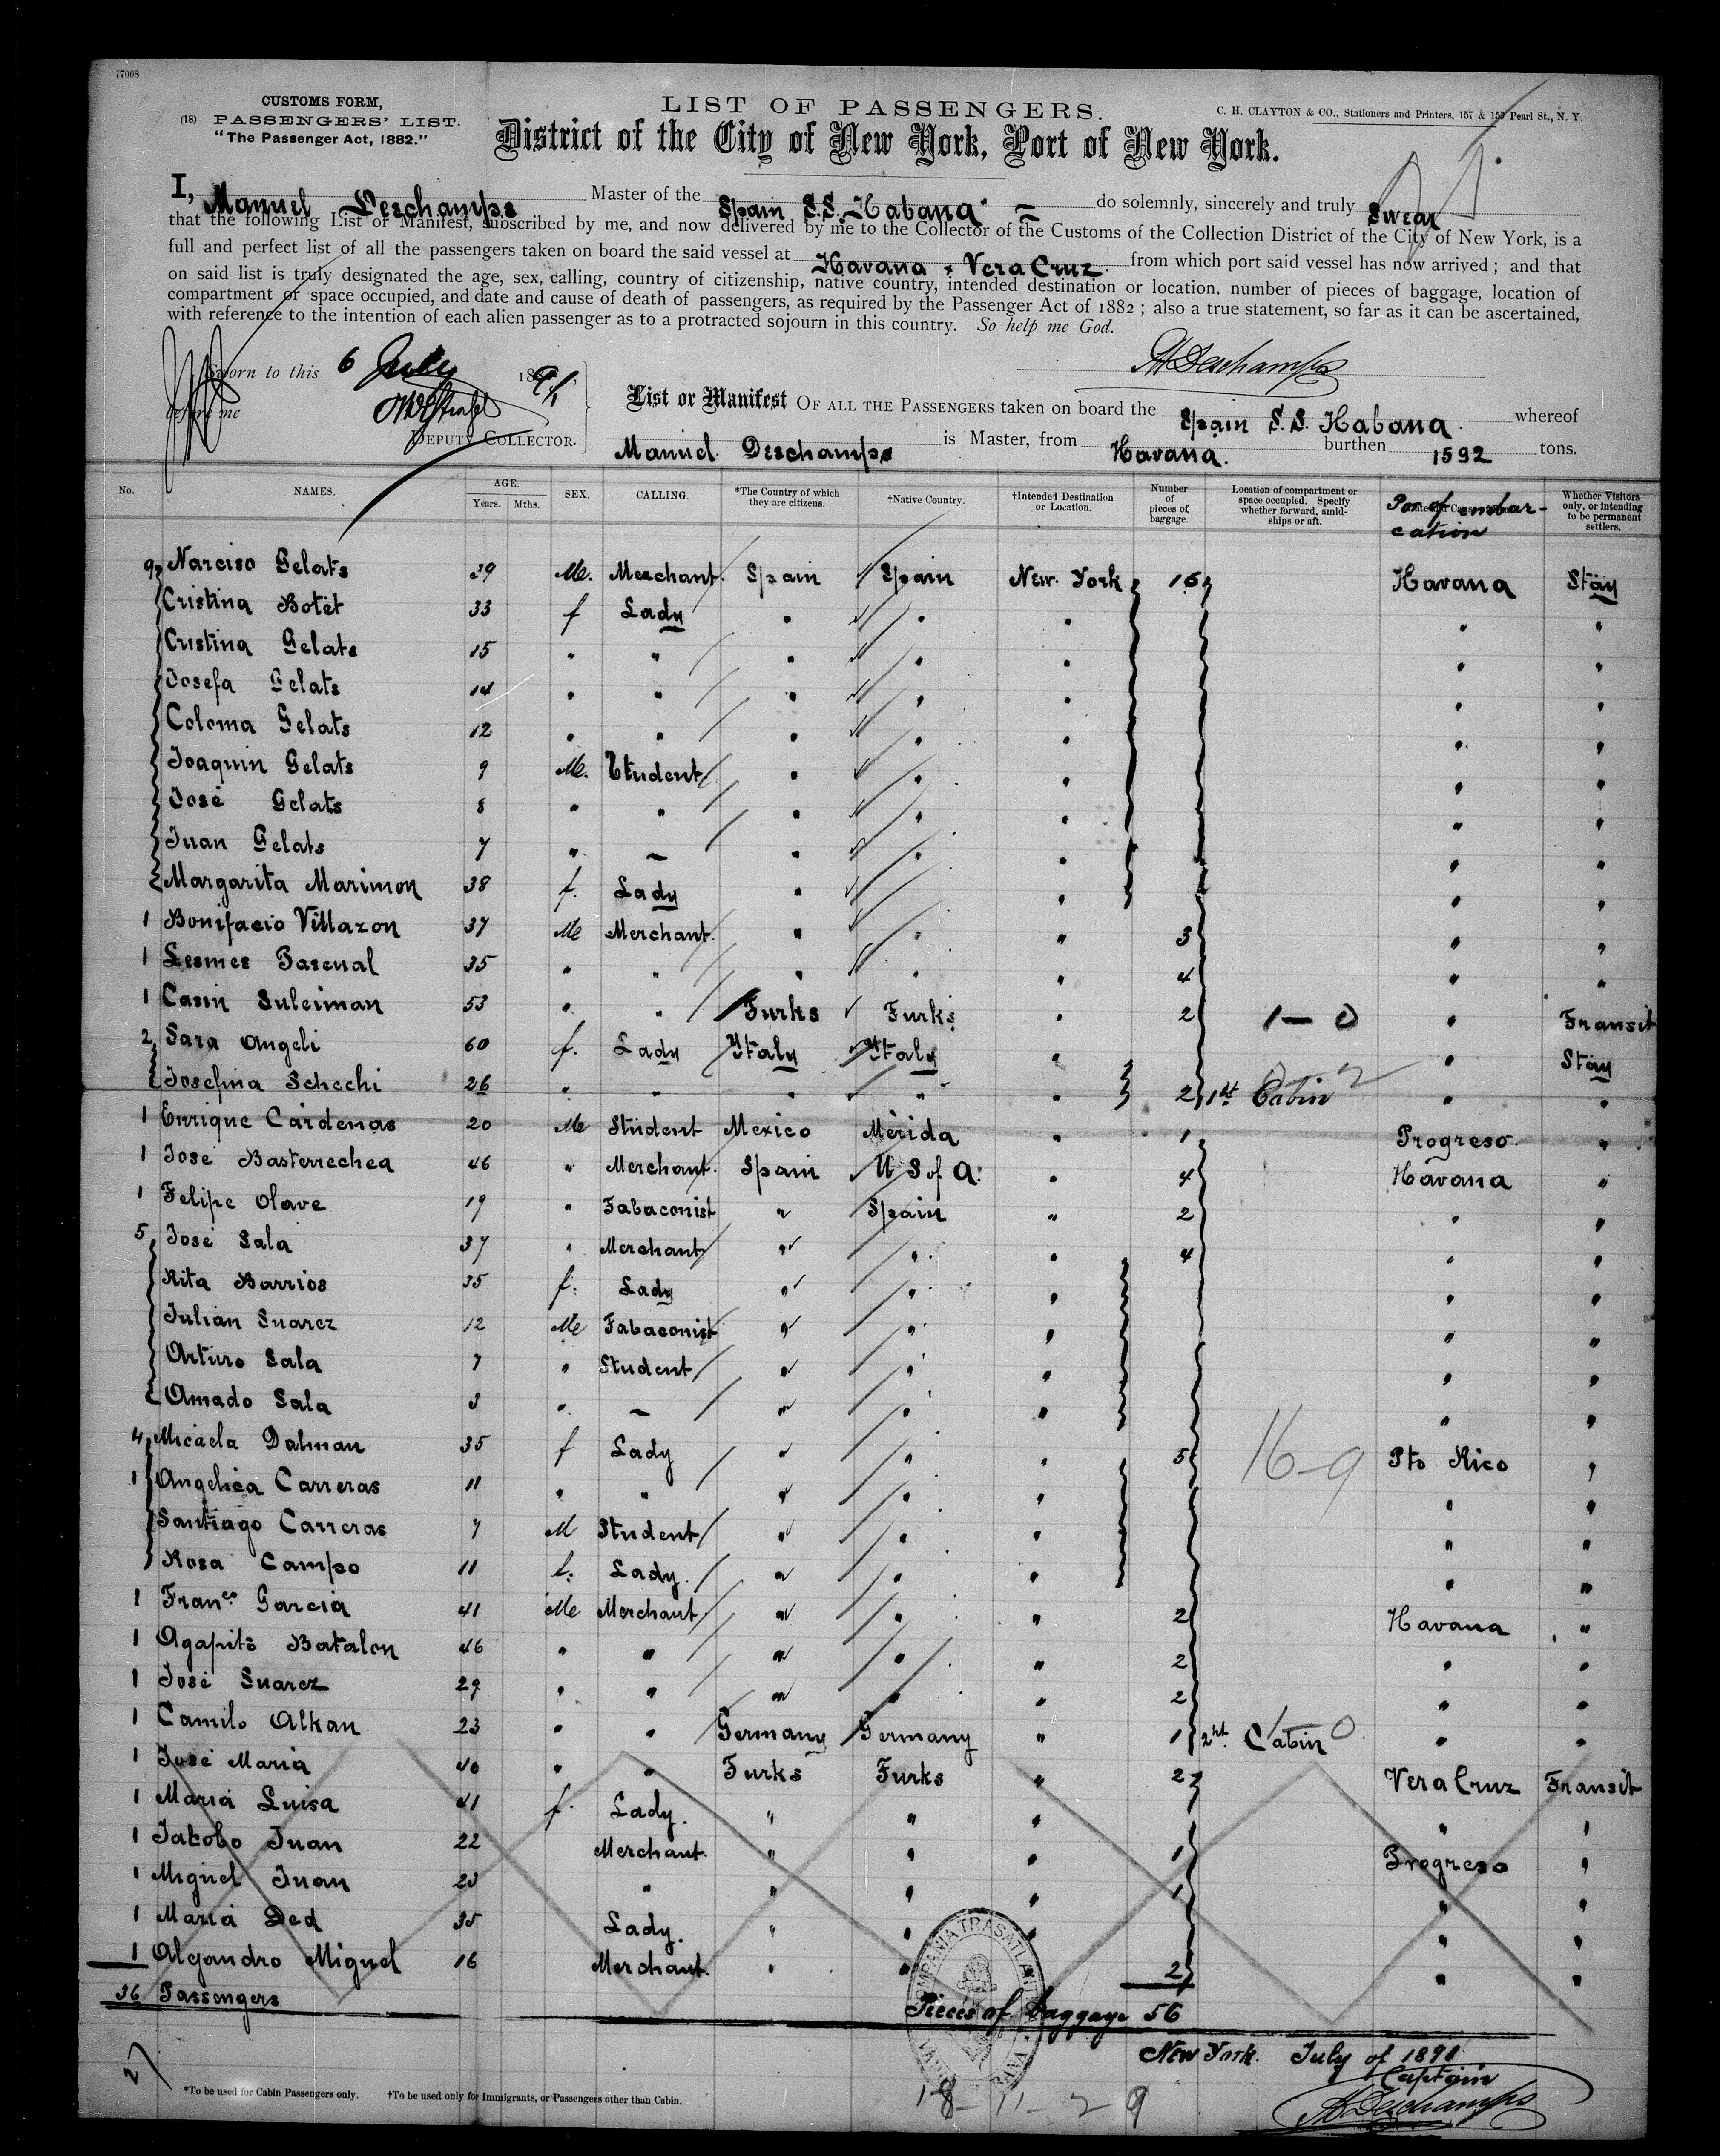 17008
CUSTOMS FORM,
(18) PASSENGERS' LIST.
"The Passenger Act, 1882."
LIST OF PASSENGERS.
C. H. CLAYTON & CO., Stationers and Printers, 157 & 159 Pearl St., N. Y.
District of the City of New York, Port of New York.
I, Manuel Deschamps Master of the Spain S.S. Habana do solemnly, sincerely and truly swear
that the following List or Manifest, subscribed by me, and now delivered by me to the Collector of the Customs of the Collection District of the City of New York, is a
full and perfect list of all the passengers taken on board the said vessel at Havana & Vera Cruz. from which port said vessel has now arrived; and that
on said list is truly designated the age, sex, calling, country of citizenship, native country, intended destination or location, number of pieces of baggage, location of
compartment or space occupied, and date and cause of death of passengers, as required by the Passenger Act of 1882; also a true statement, so far as it can be ascertained,
with reference to the intention of each alien passenger as to a protracted sojourn in this country. So help me God.
Sworn to this 6 July 1891
before me
M Deschamps
DEPUTY COLLECTOR.
List or Manifest OF ALL THE PASSENGERS taken on board the Spain S.S. Habana. whereof
Manuel Deschamps is Master, from Havana. burthen 1592 tons.
No. NAMES. AGE. Years. Mths. SEX. CALLING. *The Country of which they are citizens. †Native Country. †Intended Destination or Location. Number of pieces of baggage. Location of compartment or space occupied. Specify whether forward, amidships or aft. Por of embarcation Whether Visitors only, or intending to be permanent settlers.
9 Narciso Gelats 39 Me. Merchant. Spain Spain New York 16 Havana Stay
Cristina Botet 33 f Lady " " " " "
Cristina Gelats 15 " " " " " " "
Josefa Gelats 14 " " " " " " "
Coloma Gelats 12 " " " " " " "
Joaquin Gelats 9 M. Student " " " " "
José Gelats 8 " " " " " " "
Juan Gelats 7 " – " " " " "
Margarita Marimon 38 f. Lady " " " " "
1 Bonifacio Villazon 37 Me Merchant. " " " 3 " "
1 Lesmes Pascual 35 " " " " " 4 " "
1 Casin Suleiman 53 " " Turks Turks " 2 1–0 " Transit
2 Sara Angeli 60 f. Lady Ytaly Ytaly " " Stay
Josefina Schechi 26 " " " " " 2 1st Cabin " "
1 Enrique Cárdenas 20 Me Student Mexico Mérida " 1 Progreso "
1 José Basterrechea 46 " Merchant. Spain U S of A. " 4 Havana "
1 Felipe Olave 19 " Tabaconist " Spain " 2 " "
5 José Sala 37 " Merchant " " " 4 " "
Rita Barrios 35 f. Lady " " " " "
Julian Suarez 12 Me Tabaconist " " " " "
Arturo Sala 7 " Student " " " " "
Amado Sala 3 " – " " " " "
4 Micaela Dalmau 35 f Lady " " " 5 16–9 Pto Rico "
1 Angelica Carreras 11 " " " " " " "
Santiago Carreras 7 M Student " " " " "
Rosa Campo 11 f. Lady. " " " " "
1 Franco. Garcia 41 Me Merchant " " " 2 Havana "
1 Agapito Batalon 46 " " " " " 2 " "
1 José Suarez 29 " " " " " 2 " "
1 Camilo Alkan 23 " " Germany Germany " 1 2nt. Cabin " "
1 José Maria 40 " " Turks Turks " 2 Vera Cruz Transit
1 Maria Luisa 41 f. Lady. " " " " "
1 Jacobo Juan 22 Merchant. " " " 1 Progreso "
1 Miguel Juan 23 " " " " 1 " "
1 Maria Ded 35 Lady. " " " " "
1 Alejandro Miguel 16 Merchant. " " " 2 " "
36 Passengers
Pieces of baggage 56
New York. July of 1891
Captain
M Deschamps
27
*To be used for Cabin Passengers only. †To be used only for Immigrants, or Passengers other than Cabin.
18– 11– 2 9